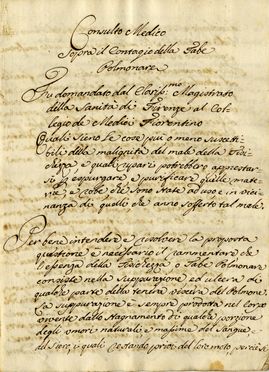 Consulto Medico
Sopra il Contagio della Tabe
Polmonare
Fu domandato dal Clariss.mo Magistrato
della Sanità di Firenze al Col-
legio de Medici Fiorentino
Quali sieno le cose più o meno suscett-
ibili della malignità del male della Tisi-
chezza e quali ripari potrebbero
si per espurgare e purificare quelle mate-
rie, e robe che sono state ad uso e in vici-
nanza di quello che anno sofferto tal male.
Per bene intendere e risolvere la proposta
questione è necessario il rammentare che
l'essenza della Tisichezza o Tabe Polmonare
consiste nella suppurazione ed ulcera di
qualche parte della tenera viscera del Polmone
la suppurazione è sempre prodotta nel corpo
vivente dallo stagnamento di qualche porzione
degli umori naturali e massime del Sangue e
del Siero, i quali restando privi del loro moto,